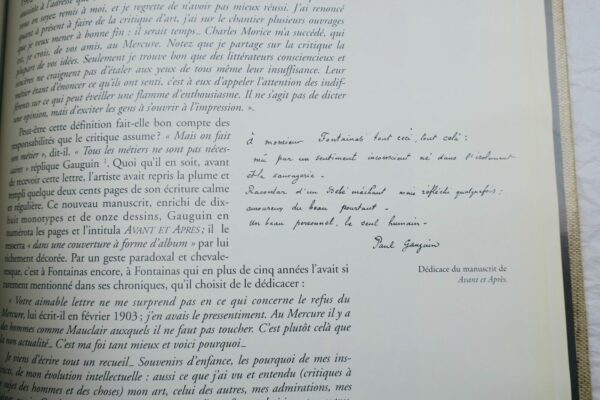 quant à présent à faire de la critique d'art, j'ai sur le chantier plusieurs ouvrages
que je veux mener à bonne fin : il serait temps... Charles Morice m'a succédé, qui
est, je crois, de vos amis, au Mercure. Notez que je partage sur la critique la
plupart de vos idées. Seulement je trouve bon que des littérateurs consciencieux et
sincères ne craignent pas d'étaler aux yeux de tous même leur insuffisance. Leur
métier étant d'énoncer ce qu'ils ont senti, c'est à eux d'appeler l'attention des indif-
férents sur ce qui peut éveiller une flamme d'enthousiasme. Il ne s'agit pas de dicter
une opinion, mais d'exciter les gens à s'ouvrir à l'impression. ».
Peut-être cette définition fait-elle bon compte des
responsabilités que le critique assume ? « Mais on fait
son métier », dit-il. « Tous les métiers ne sont pas néces-
saires » réplique Gauguin ¹. Quoi qu'il en soit, avant
de recevoir cette lettre, l'artiste avait repris la plume et
rempli quelque deux cents pages de son écriture calme
et régulière. Ce nouveau manuscrit, enrichi de dix-
huit monotypes et de onze dessins, Gauguin en
numérota les pages et l'intitula AVANT ET APRÈS ; il le
resserra « dans une couverture à forme d'album » par lui
richement décorée. Par un geste paradoxal et chevale-
resque, c'est à Fontainas encore, à Fontainas qui en plus de cinq années l'avait si
rarement mentionné dans ses chroniques, qu'il choisit de le dédicacer :
« Votre aimable lettre ne me surprend pas en ce qui concerne le refus du
Mercure, lui écrit-il en février 1903 ; j'en avais le pressentiment. Au Mercure il y a
des hommes comme Mauclair auxquels il ne faut pas toucher. C'est plutôt celà que
non actualité... C'est ma foi tant mieux et voici pourquoi...
Je viens d'écrire tout un recueil... Souvenirs d'enfance, les pourquoi de mes ins-
tincts, de mon évolution intellectuelle : aussi ce que j'ai vu et entendu (critiques à
sujet des hommes et des choses) mon art, celui des autres, mes admirations, mes
À monsieur Fontainas tout ceci, tout celà :
mû par un sentiment inconscient né dans l'isolement
et la sauvagerie -
Racontars d'un Bébé méchant mais réfléchi quelquefois ;
amoureux du beau pourtant -
Un beau personnel, le seul humain -
Paul Gauguin
Dédicace du manuscrit de
Avant et Après.